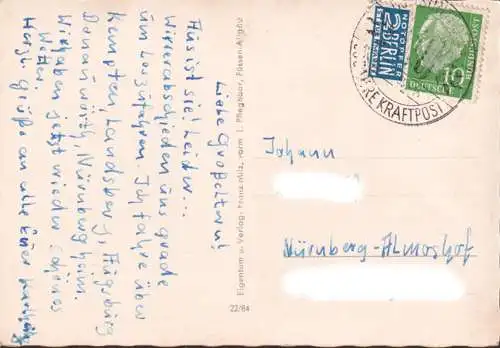 Liebe Großeltern!
Aus ist sie! Leider...
Wir verabschieden uns grade
um loszufahren. Ich fahre über
Kempten, Landsberg, Augsburg
Donauwörth, Nürnberg heim.
Wir haben jetzt wieder schönes
Wetter.
Herzl. Grüße an alle Euer
Eigentum u. Verlag: Franz Milz, vorm. L. Pfleghaar, Füssen-Allgäu
22/84
NOTOPFER
2 BERLIN
STEUERMARKE
DEUTSCHE BUNDESPOST
10
KRAFTPOST
Johann
Nürnberg-Almoshof